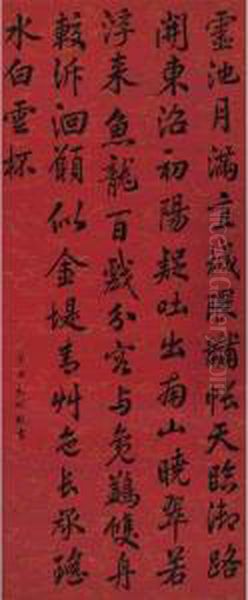 靈池月滿直城隈黼帳天臨御路
開東沼初陽疑吐出南山曉翠若
浮来魚龍百戲分容与鳧鷁雙舟
較泝洄願似金堤青草色長承瑤
水白雲杯